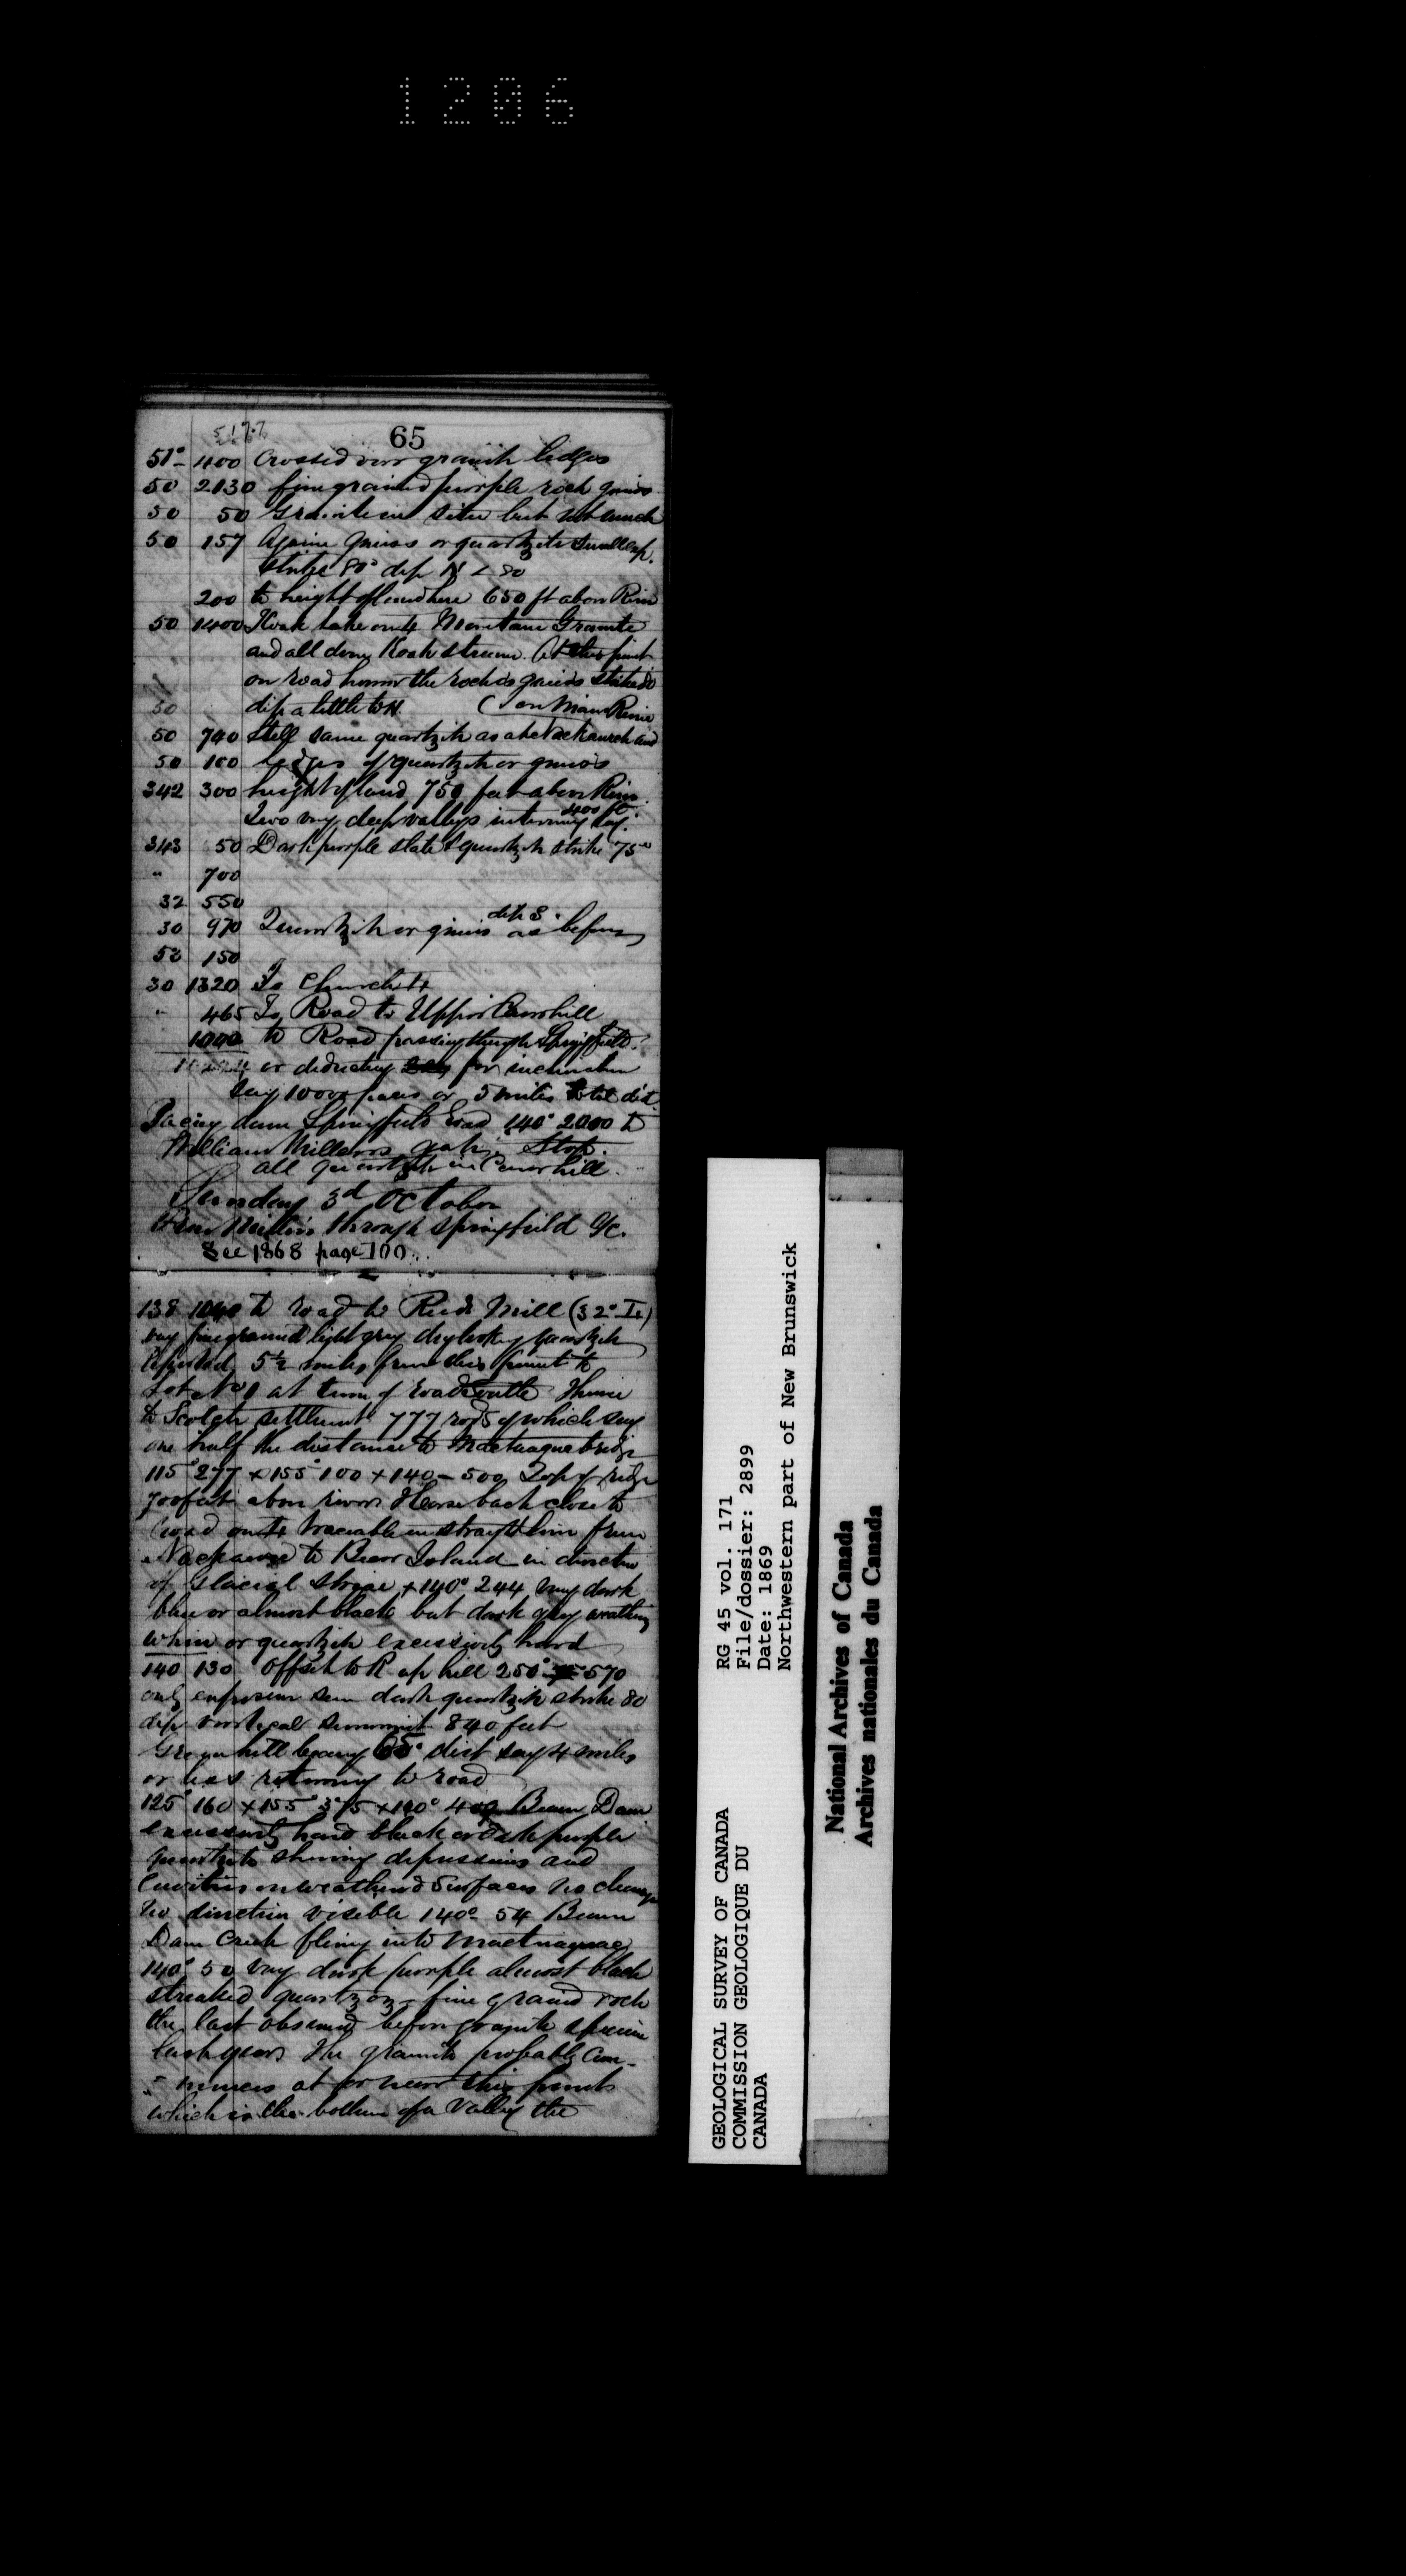 1206
65
51° 400 Crossed over granite ledges
50 2130 fine grained purple rock gneiss
50 50 Granite in situ but not much
50 157 Again Gneiss or quartzite small exp.
strike 80° dip N < 80
200 to height of land here 650 ft above River
50 1400 Koak lake on Montane Granite
and all down Koak stream. At this point
on road however the rock is gneiss strike 80
50 dip a little to N. (on Main River
50 740 Still same quartzite as at and
50 100 ledges of quartzite or gneiss
342 300 height of land 750 feet above River
400 ft.
Two very deep valleys intervening say
343 50 Dark purple slate & quartzite strike 75°
" 700
32 550
dip S.
30 970 Quartzite or gneiss as before
52 150
30 1320 To Church
" 465 To Road to Upper Caverhill
1040 to Road passing through Springfield
or deducting for inclination
say 10000 paces or 5 miles total dist.
Pacing down Springfield Road 140° 2000 to
William Millers gate. Stop.
all quartzite in Caverhill.
Sunday 3d October
From through Springfield &c.
See 1868 page 100
138 1040 to road to Reeds Mill (32° )
very fine grained light grey dry looking quartzite
5½ miles from this point to
Lot No 1 at turn of road Thence
to Scotch settlement 777 rods of which say
one half the distance to Mactuaque bridge
115° 277 + 155° 100 + 140 - 500 Top of ridge
700 feet above river. Horseback close to
road on traceable in straight line from
Nackawic to Bear Island in direction
of glacial striae + 140° 244 very dark
blue or almost black but dark grey weathering
whin or quartzite excessively hard
140 130 offset to R up hill 250° 570
only exposure seen dark quartzite strike 80
dip vertical summit 840 feet
Green hill bearing 65° dist say 4 miles
or less returning to road
125° 160 + 155° 375 + 140° 400 Beaver Dam
excessively hard black or dark purple
quartzite showing depressions and
cavities on weathered surfaces no cleavage
no direction visible 140° 54 Beaver
Dam Creek flowing into Mactuaquac
140° 50 very dark purple almost black
streaked quartzoze fine grained rock
the last observed before granite
last year. The granite probably com-
- mences at or near this point
which is the bottom of a valley the
GEOLOGICAL SURVEY OF CANADA
COMMISSION GEOLOGIQUE DU
CANADA
RG 45 vol. 171
File/dossier: 2899
Date: 1869
Northwestern part of New Brunswick
National Archives of Canada
Archives nationales du Canada